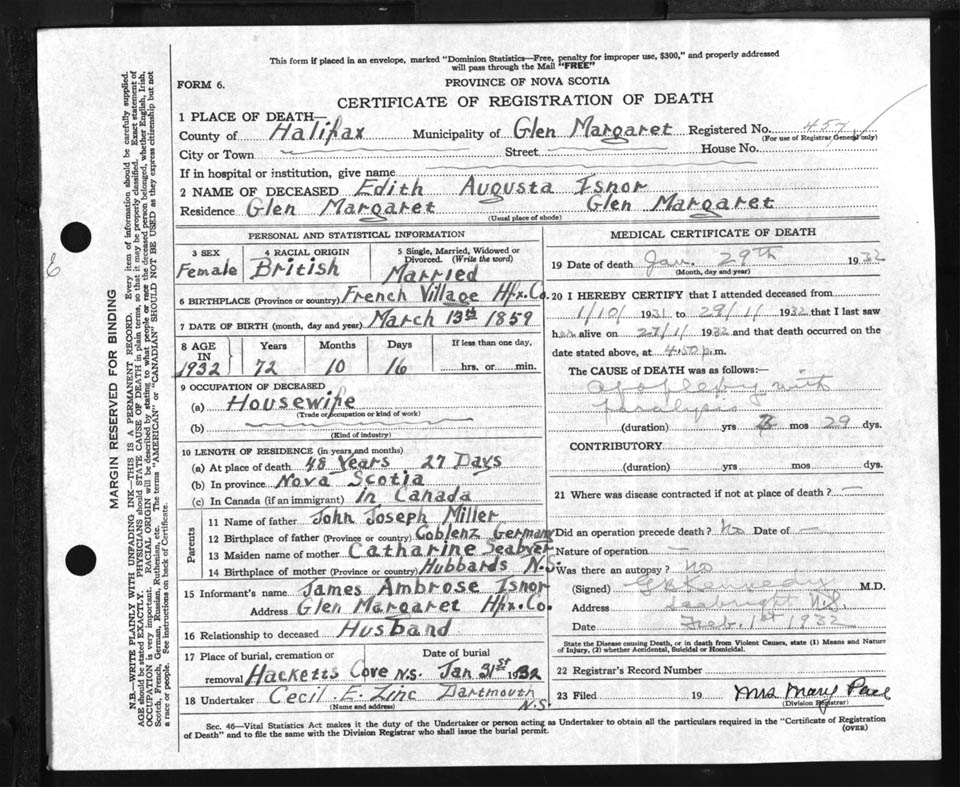 This form if placed in an envelope, marked "Dominion Statistics—Free, penalty for improper use, $300," and properly addressed
will pass through the Mail "FREE"
FORM 6.
PROVINCE OF NOVA SCOTIA
CERTIFICATE OF REGISTRATION OF DEATH
1 PLACE OF DEATH—
County of Halifax Municipality of Glen Margaret Registered No. 457
(For use of Registrar General only)
City or Town Street House No.
If in hospital or institution, give name
2 NAME OF DECEASED Edith Augusta Isnor
Residence Glen Margaret Glen Margaret
(Usual place of abode)
PERSONAL AND STATISTICAL INFORMATION
3 SEX 4 RACIAL ORIGIN 5 Single, Married, Widowed or
Divorced. (Write the word)
Female British Married
6 BIRTHPLACE (Province or country) French Village Hfx. Co.
7 DATE OF BIRTH (month, day and year) March 13th 1859
8 AGE Years Months Days If less than one day,
IN
1932 72 10 16 hrs. or min.
9 OCCUPATION OF DECEASED
(a) Housewife
(Trade occupation or kind of work)
(b)
(Kind of industry)
10 LENGTH OF RESIDENCE (in years and months)
(a) At place of death 48 Years 27 Days
(b) In province Nova Scotia
(c) In Canada (if an immigrant) in Canada
Parents
11 Name of father John Joseph Miller
12 Birthplace of father (Province or country) Coblenz Germany
13 Maiden name of mother Catharine
14 Birthplace of mother (Province or country) Hubbards N.S.
15 Informant's name James Ambrose Isnor
Address Glen Margaret Hfx. Co.
16 Relationship to deceased Husband
17 Place of burial, cremation or Date of burial
removal Hacketts Cove N.S. Jan 31st 1932
18 Undertaker Cecil E. Zinc Dartmouth
(Name and address) N.S.
MEDICAL CERTIFICATE OF DEATH
19 Date of death Jan. 29th 1932
(Month, day and year)
20 I HEREBY CERTIFY that I attended deceased from
1/10/ 1931 to 29/1/ 1932 that I last saw
her alive on 27/1/ 1932 and that death occurred on
date stated above, at 4.50 p.m.
The CAUSE of DEATH was as follows:—
apoplexy with
paralysis
(duration) yrs mos 29 dys.
CONTRIBUTORY
(duration) yrs. mos. dys.
21 Where was disease contracted if not at place of death? —
Did an operation precede death? No Date of —
Nature of operation —
Was there an autopsy? No
(Signed) Kennedy M.D.
Address Seabright N.S.
Date Feb. 1st 1932
State the Disease causing Death, or in death from Violent Causes, state (1) Means and Nature
of Injury, (2) whether Accidental, Suicidal or Homicidal.
22 Registrar's Record Number
23 Filed 19 Mrs Mary
(Division Registrar)
Sec. 46—Vital Statistics Act makes it the duty of the Undertaker or person acting as Undertaker to obtain all the particulars required in the "Certificate of Registration
of Death" and to file the same with the Division Registrar who shall issue the burial permit.
(OVER)
MARGIN RESERVED FOR BINDING
N.B.—WRITE PLAINLY WITH UNFADING INK—THIS IS A PERMANENT RECORD. Every item of information should be carefully supplied.
AGE should be stated EXACTLY. PHYSICIANS should STATE CAUSE OF DEATH in plain terms, so that it may be properly classified. Exact statement of
OCCUPATION is very important. RACIAL ORIGIN will be described by stating to what people or race the deceased person belonged, whether English, Irish,
Scotch, French, German, Russian, Ruthenian, etc. The terms "AMERICAN" or "CANADIAN" SHOULD NOT BE USED as they express citizenship but not
a race or people. See instructions on back of Certificate.